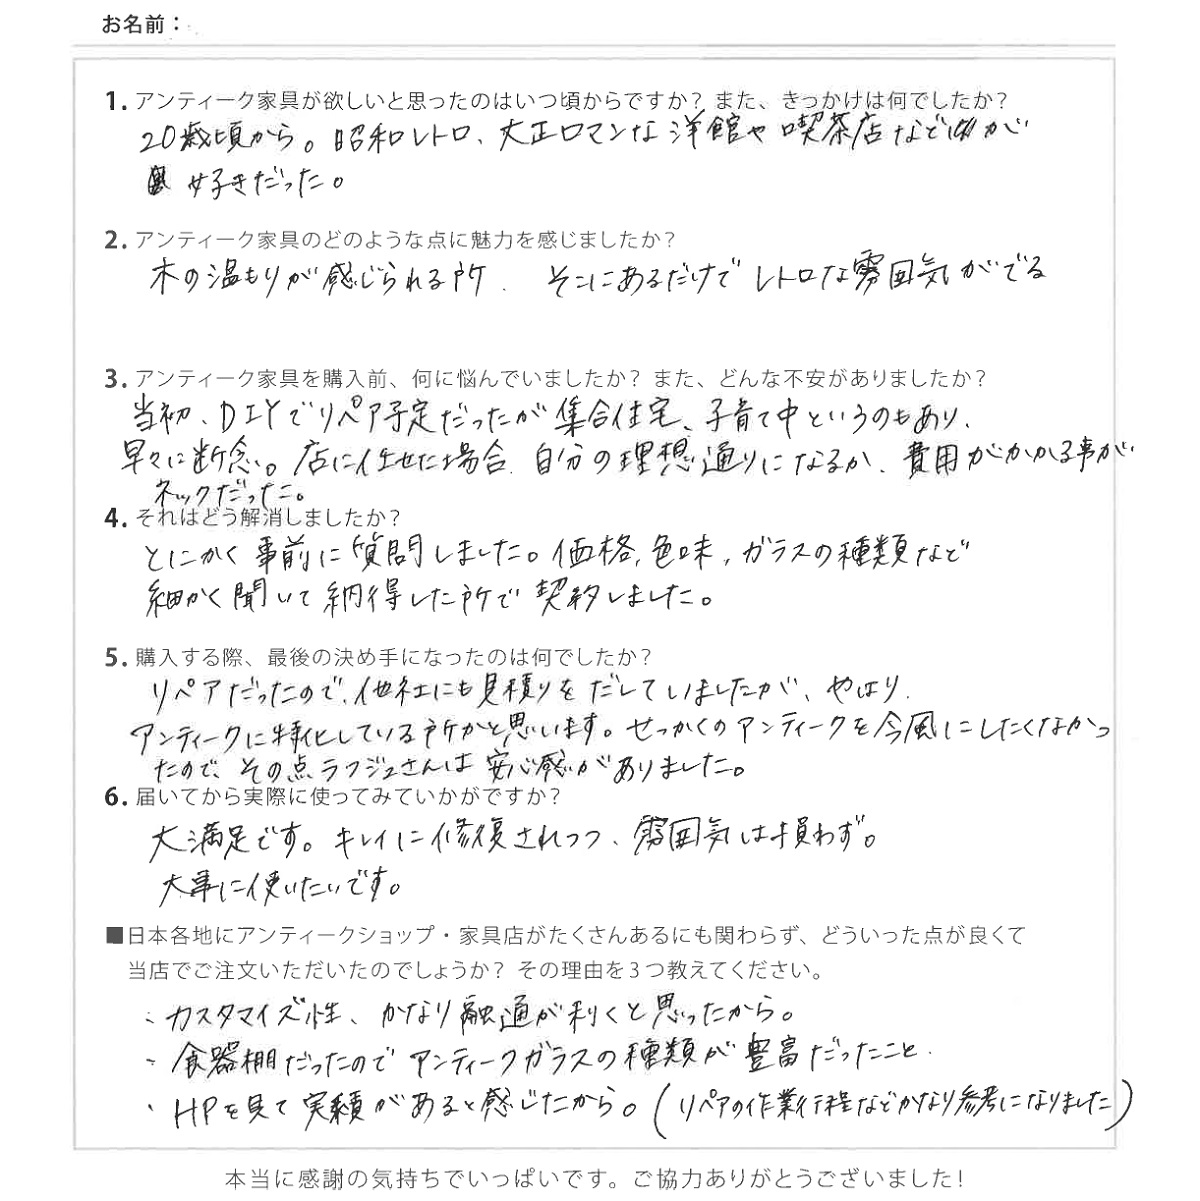 お名前：
1. アンティーク家具が欲しいと思ったのはいつ頃からですか？ また、きっかけは何でしたか？
20歳頃から。昭和レトロ、大正ロマンな洋館や喫茶店などが
好きだった。
2. アンティーク家具のどのような点に魅力を感じましたか？
木の温もりが感じられる所. そこにあるだけでレトロな雰囲気がでる
3. アンティーク家具を購入前、何に悩んでいましたか？ また、どんな不安がありましたか？
当初、DIYでリペア予定だったが集合住宅、子育て中というのもあり、
早々に断念。店に任せた場合、自分の理想通りになるか、費用がかかる事が
ネックだった。
4. それはどう解消しましたか？
とにかく事前に質問しました。価格,色味,ガラスの種類など
細かく聞いて納得した所で契約しました。
5. 購入する際、最後の決め手になったのは何でしたか？
リペアだったので、他社にも見積りをだしていましたが、やはり、
アンティークに特化している所かと思います。せっかくのアンティークを今風にしたくなかっ
たので、その点ラフジュさんは安心感がありました。
6. 届いてから実際に使ってみていかがですか？
大満足です。キレイに修復されつつ、雰囲気は損わず。
大事に使いたいです。
■日本各地にアンティークショップ・家具店がたくさんあるにも関わらず、どういった点が良くて
当店でご注文いただいたのでしょうか？ その理由を3つ教えてください。
・カスタマイズ性、かなり融通が利くと思ったから。
・食器棚だったのでアンティークガラスの種類が豊富だったこと.
・HPを見て実績があると感じたから。(リペアの作業行程などかなり参考になりました)
本当に感謝の気持ちでいっぱいです。ご協力ありがとうございました！